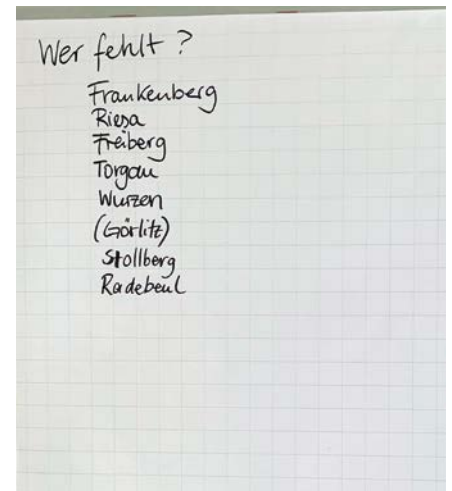 Wer fehlt ?
Frankenberg
Riesa
Freiberg
Torgau
Wurzen
(Görlitz)
Stollberg
Radebeul